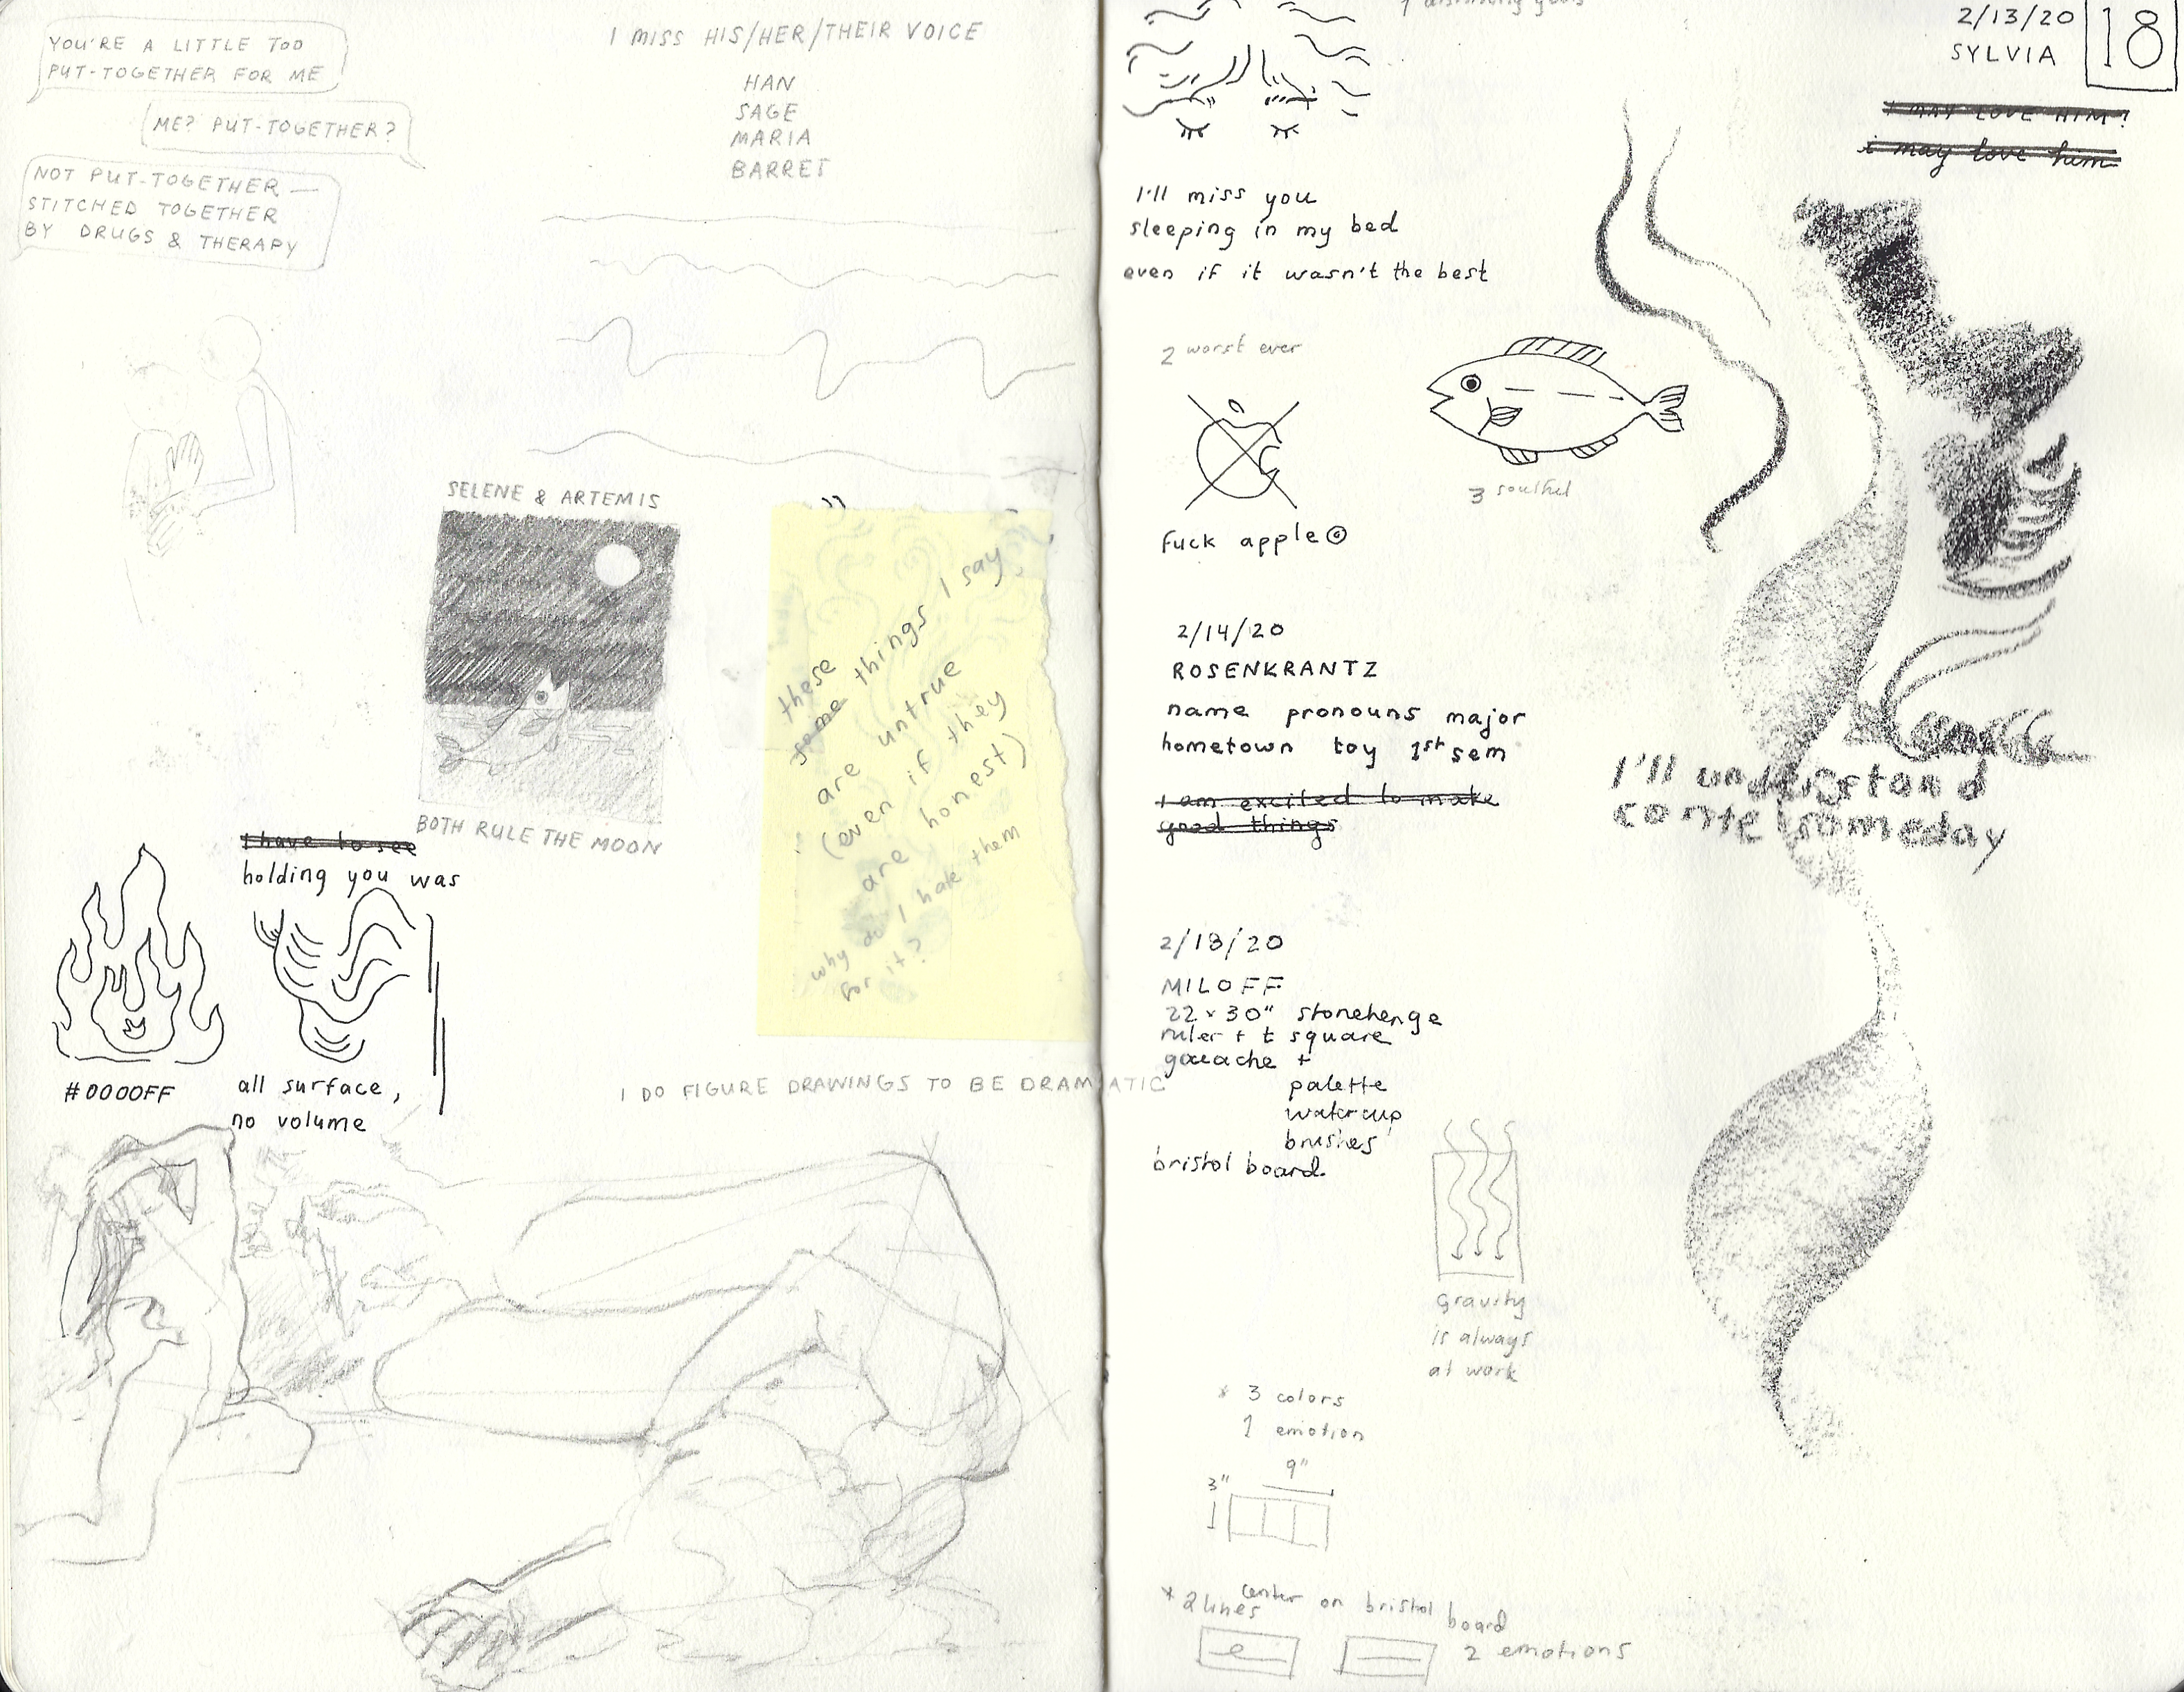 YOU'RE A LITTLE TOO
PUT-TOGETHER FOR ME
ME? PUT-TOGETHER?
NOT PUT-TOGETHER —
STITCHED TOGETHER
BY DRUGS & THERAPY
I MISS HIS/HER/THEIR VOICE
HAN
SAGE
MARIA
BARRET
SELENE & ARTEMIS
BOTH RULE THE MOON
these
some things I say
are untrue
(even if they
are honest)
why do I hate them
for it?
I have to see
holding you was
#0000FF
all surface,
no volume
I DO FIGURE DRAWINGS TO BE DRAMATIC
2/13/20
SYLVIA
18
I MAY LOVE HIM?
i may love him
I'll miss you
sleeping in my bed
even if it wasn't the best
2 worst ever
fuck apple©
3 soulful
2/14/20
ROSENKRANTZ
name pronouns major
hometown toy 1st sem
I am excited to make
good things
I'll understand
come someday
2/18/20
MILOFF
22 x 30" stonehenge
ruler + t square
gouache +
palette
watercup
brushes
bristol board
gravity
is always
at work
* 3 colors
1 emotion
9"
3"
* 2 lines center on bristol board
2 emotions